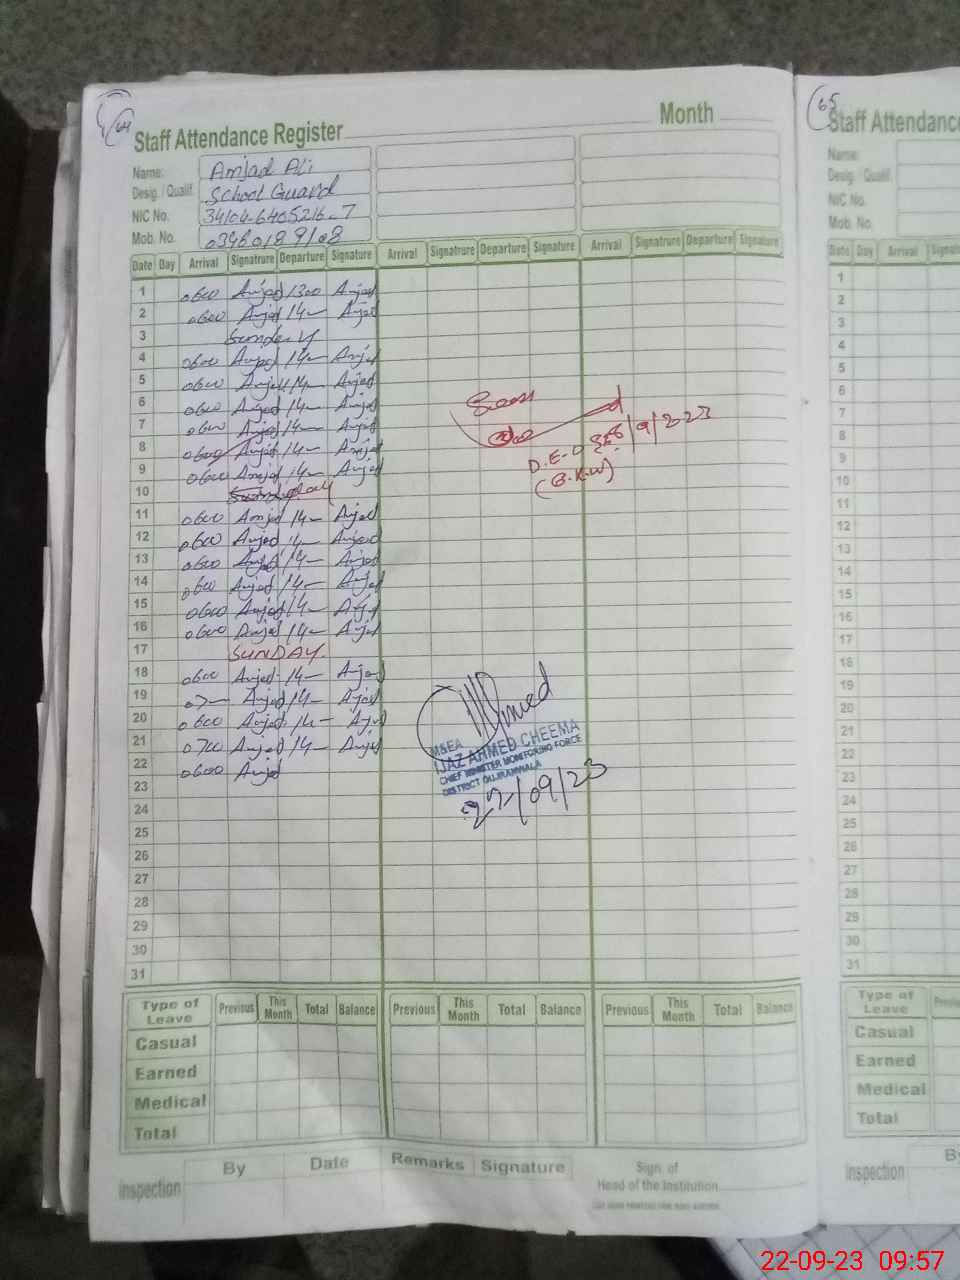 64
Staff Attendance Register Month
Name: Amjad Ali
Desig. / Qualif. School Guard
NIC No. 34104-6405216-7
Mob. No. 03460189108
Date Day Arrival Signatrure Departure Signature Arrival Signatrure Departure Signature Arrival Signatrure Departure Signature
1 0600 Amjad 1300 Amjad
2 0600 Amjad 14— Amjad
3 Sunday
4 0600 Amjad 14— Amjad
5 0600 Amjad 14— Amjad
6 0600 Amjad 14— Amjad
7 0600 Amjad 14— Amjad
8 0600 Amjad 14— Amjad
9 0600 Amjad 14— Amjad
10 Sunday
11 0600 Amjad 14— Amjad
12 0600 Amjad 14— Amjad
13 0600 Amjad 14— Amjad
14 0600 Amjad 14— Amjad
15 0600 Amjad 14— Amjad
16 0600 Amjad 14— Amjad
17 SUNDAY.
18 0600 Amjad 14— Amjad
19 07— Amjad 14— Amjad
20 0600 Amjad 14— Amjad
21 0700 Amjad 14— Amjad
22 0600 Amjad
23
24
25
26
27
28
29
30
31
Seen
D.E.O
/9/2023
Ahmed
M&EA
IJAZ AHMED CHEEMA
CHIEF MINISTER MONITORING FORCE
DISTRICT GUJRANWALA
22/09/23
Type of Leave Previous This Month Total Balance Previous This Month Total Balance Previous This Month Total Balance
Casual
Earned
Medical
Total
Inspection By Date Remarks Signature
Sign. of
Head of the Institution
65
Staff Attendance
Name:
Desig. / Qualif.
NIC No.
Mob. No.
Date Day Arrival
1
2
3
4
5
6
7
8
9
10
11
12
13
14
15
16
17
18
19
20
21
22
23
24
25
26
27
28
29
30
31
Type of Leave
Casual
Earned
Medical
Total
Inspection
22-09-23 09:57